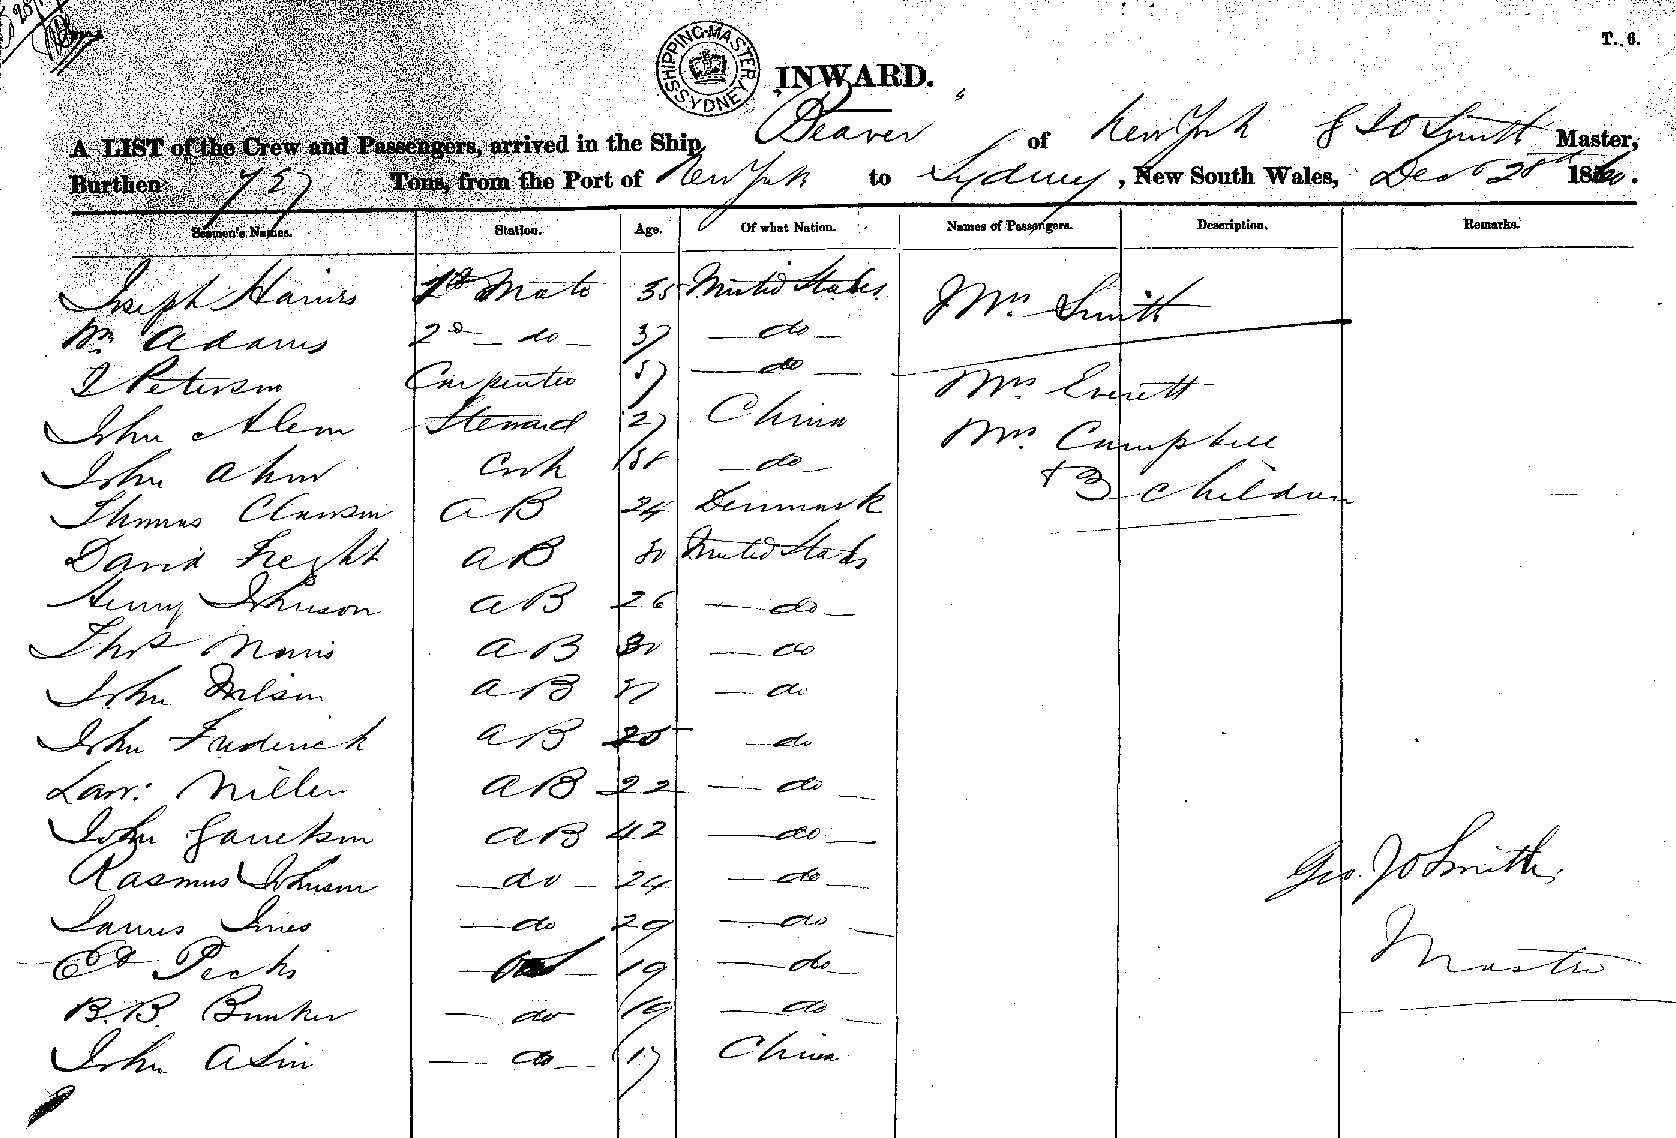 SHIPPING MASTER SYDNEY
T. 6.
INWARD.
A LIST of the Crew and Passengers, arrived in the Ship, Beaver of New York G I O Smith Master,
Burthen 727 Tons, from the Port of New York to Sydney, New South Wales, Dec 28th 18
Seamen's Names. Station. Age. Of what Nation. Names of Passengers. Description. Remarks.
Joseph Haines 1st Mate 35 United States Mrs. Smith
Wm Adams 2d do 37 do
Peterson Carpenter 37 do Mrs. Everett
John Alem Steward 27 China Mrs. Campbell
John Ahim Cook 38 do & 3 Children
Thomas Clawson AB 24 Denmark
David Freght AB 30 United States
Henry Johnson AB 26 do
Thos Morris AB 30 do
John Wilson AB do
John Frederick AB 25 do
Law: Miller AB 22 do
John Garretson AB 42 do
Rasmus Johnson do 24 do Geo. I O Smith,
James Innes do 29 do
Ed Pecks 19 do Master
B. B. Bunker do 19 do
John Asin do 17 China